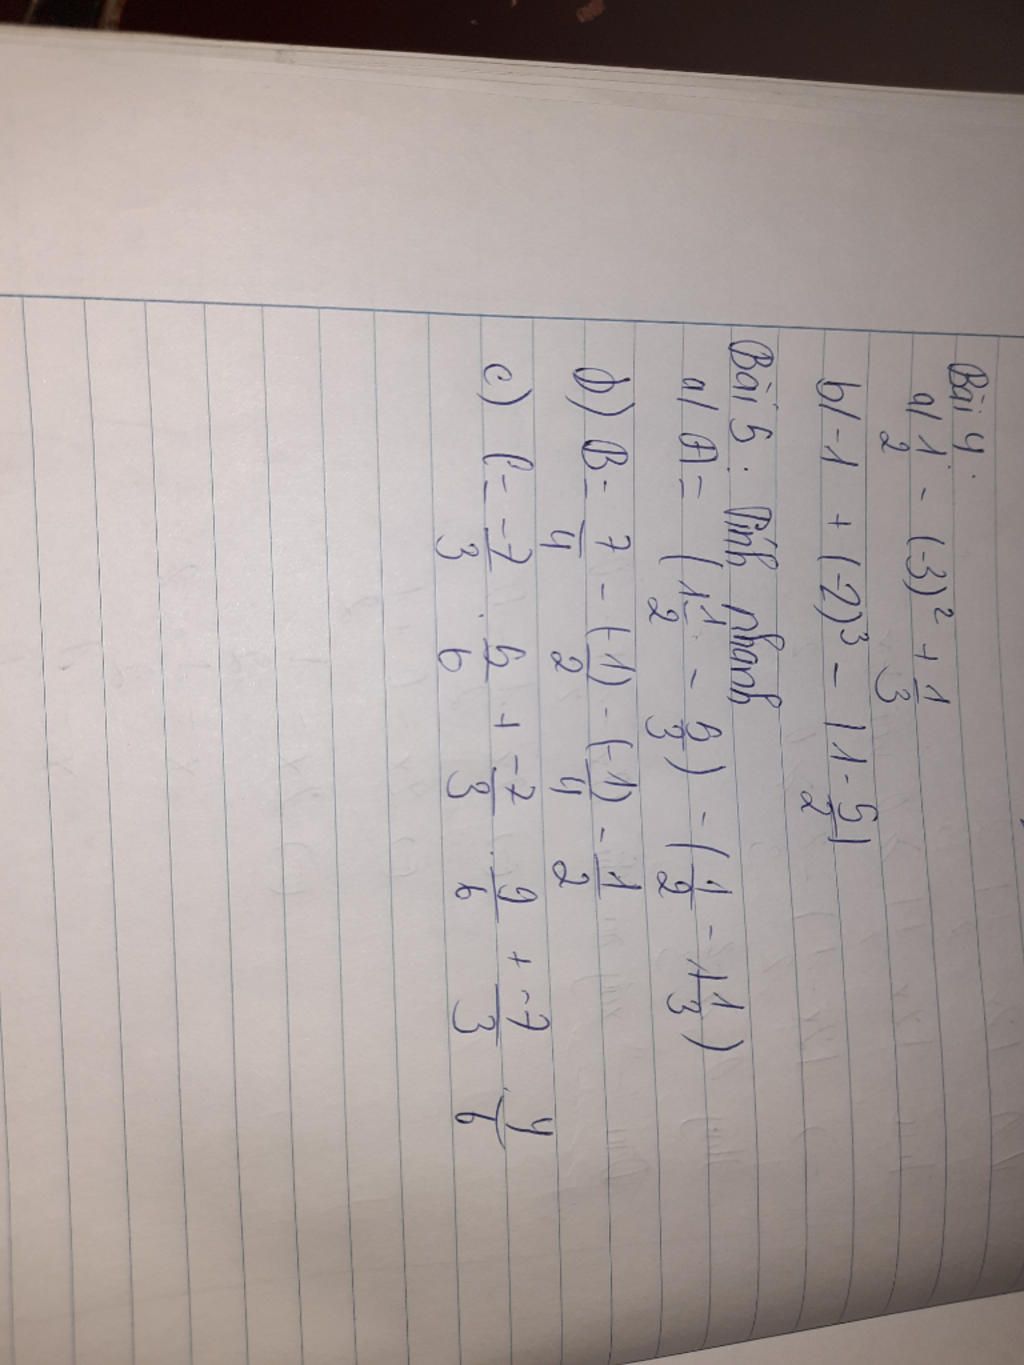 Bài 4.
a/ 1/2 - (-3)² + 1/3
b/ -1 + (-2)³ - |1 - 5/2|
Bài 5: Tính nhanh
a/ A = (1 1/2 - 5/3) - (1/2 - 1 1/3)
b) B = 7/4 - (-1/2) - (-1/4) - 1/2
c) C = -7/3 . 5/6 + -7/3 . 9/6 + -7/3 . 4/6